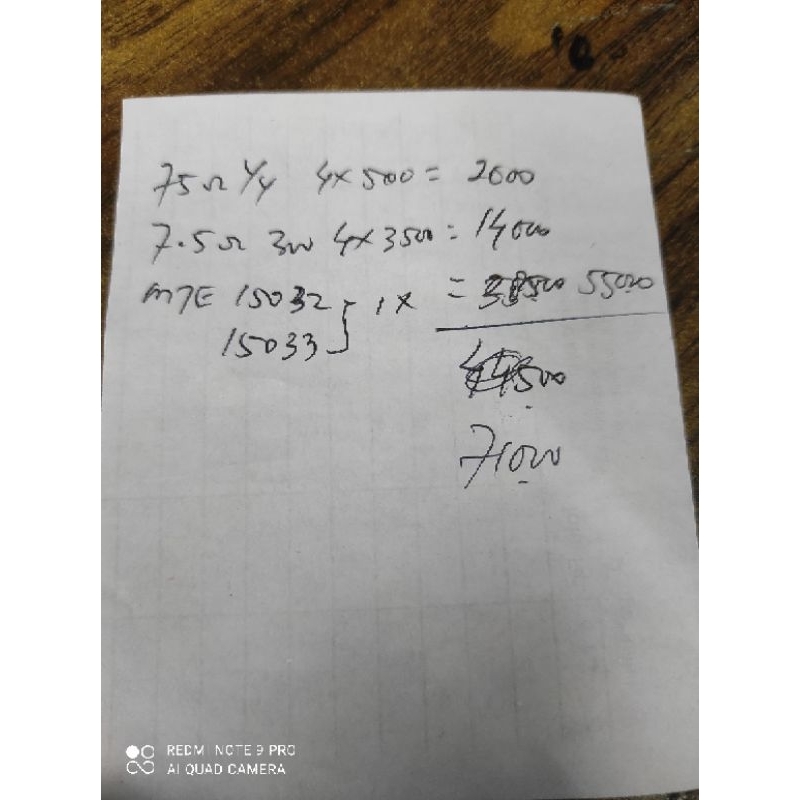 75Ω 1/4 4x500= 2000
7.5Ω 3w 4x3500= 14000
MJE 15032 } 1x = 55000
15033
71000
REDMI NOTE 9 PRO
AI QUAD CAMERA